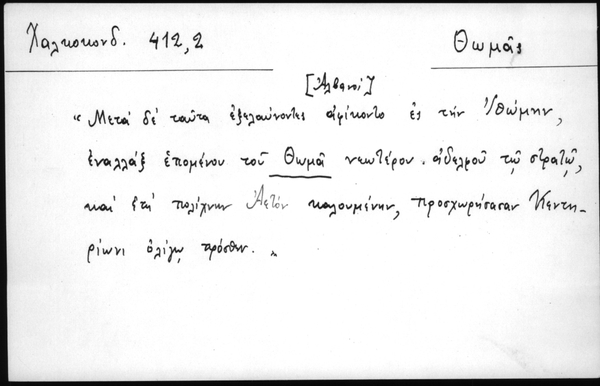 Χαλκοκονδ. 412,2
Θωμᾶς
[Ἀλβανοὶ]
“Μετὰ δὲ ταῦτα ἐξελαύνοντες ἀφίκοντο ἐς τὴν Ἰθώμην,
ἐναλλὰξ ἑπομένου τοῦ Θωμᾶ νεωτέρου ἀδελφοῦ τῷ στρατῷ,
καὶ ἐπὶ πολίχνην Ἀετὸν καλουμένην, προσχωρήσασαν Κεντη-
ρίωνι ὀλίγῳ πρόσθεν.„